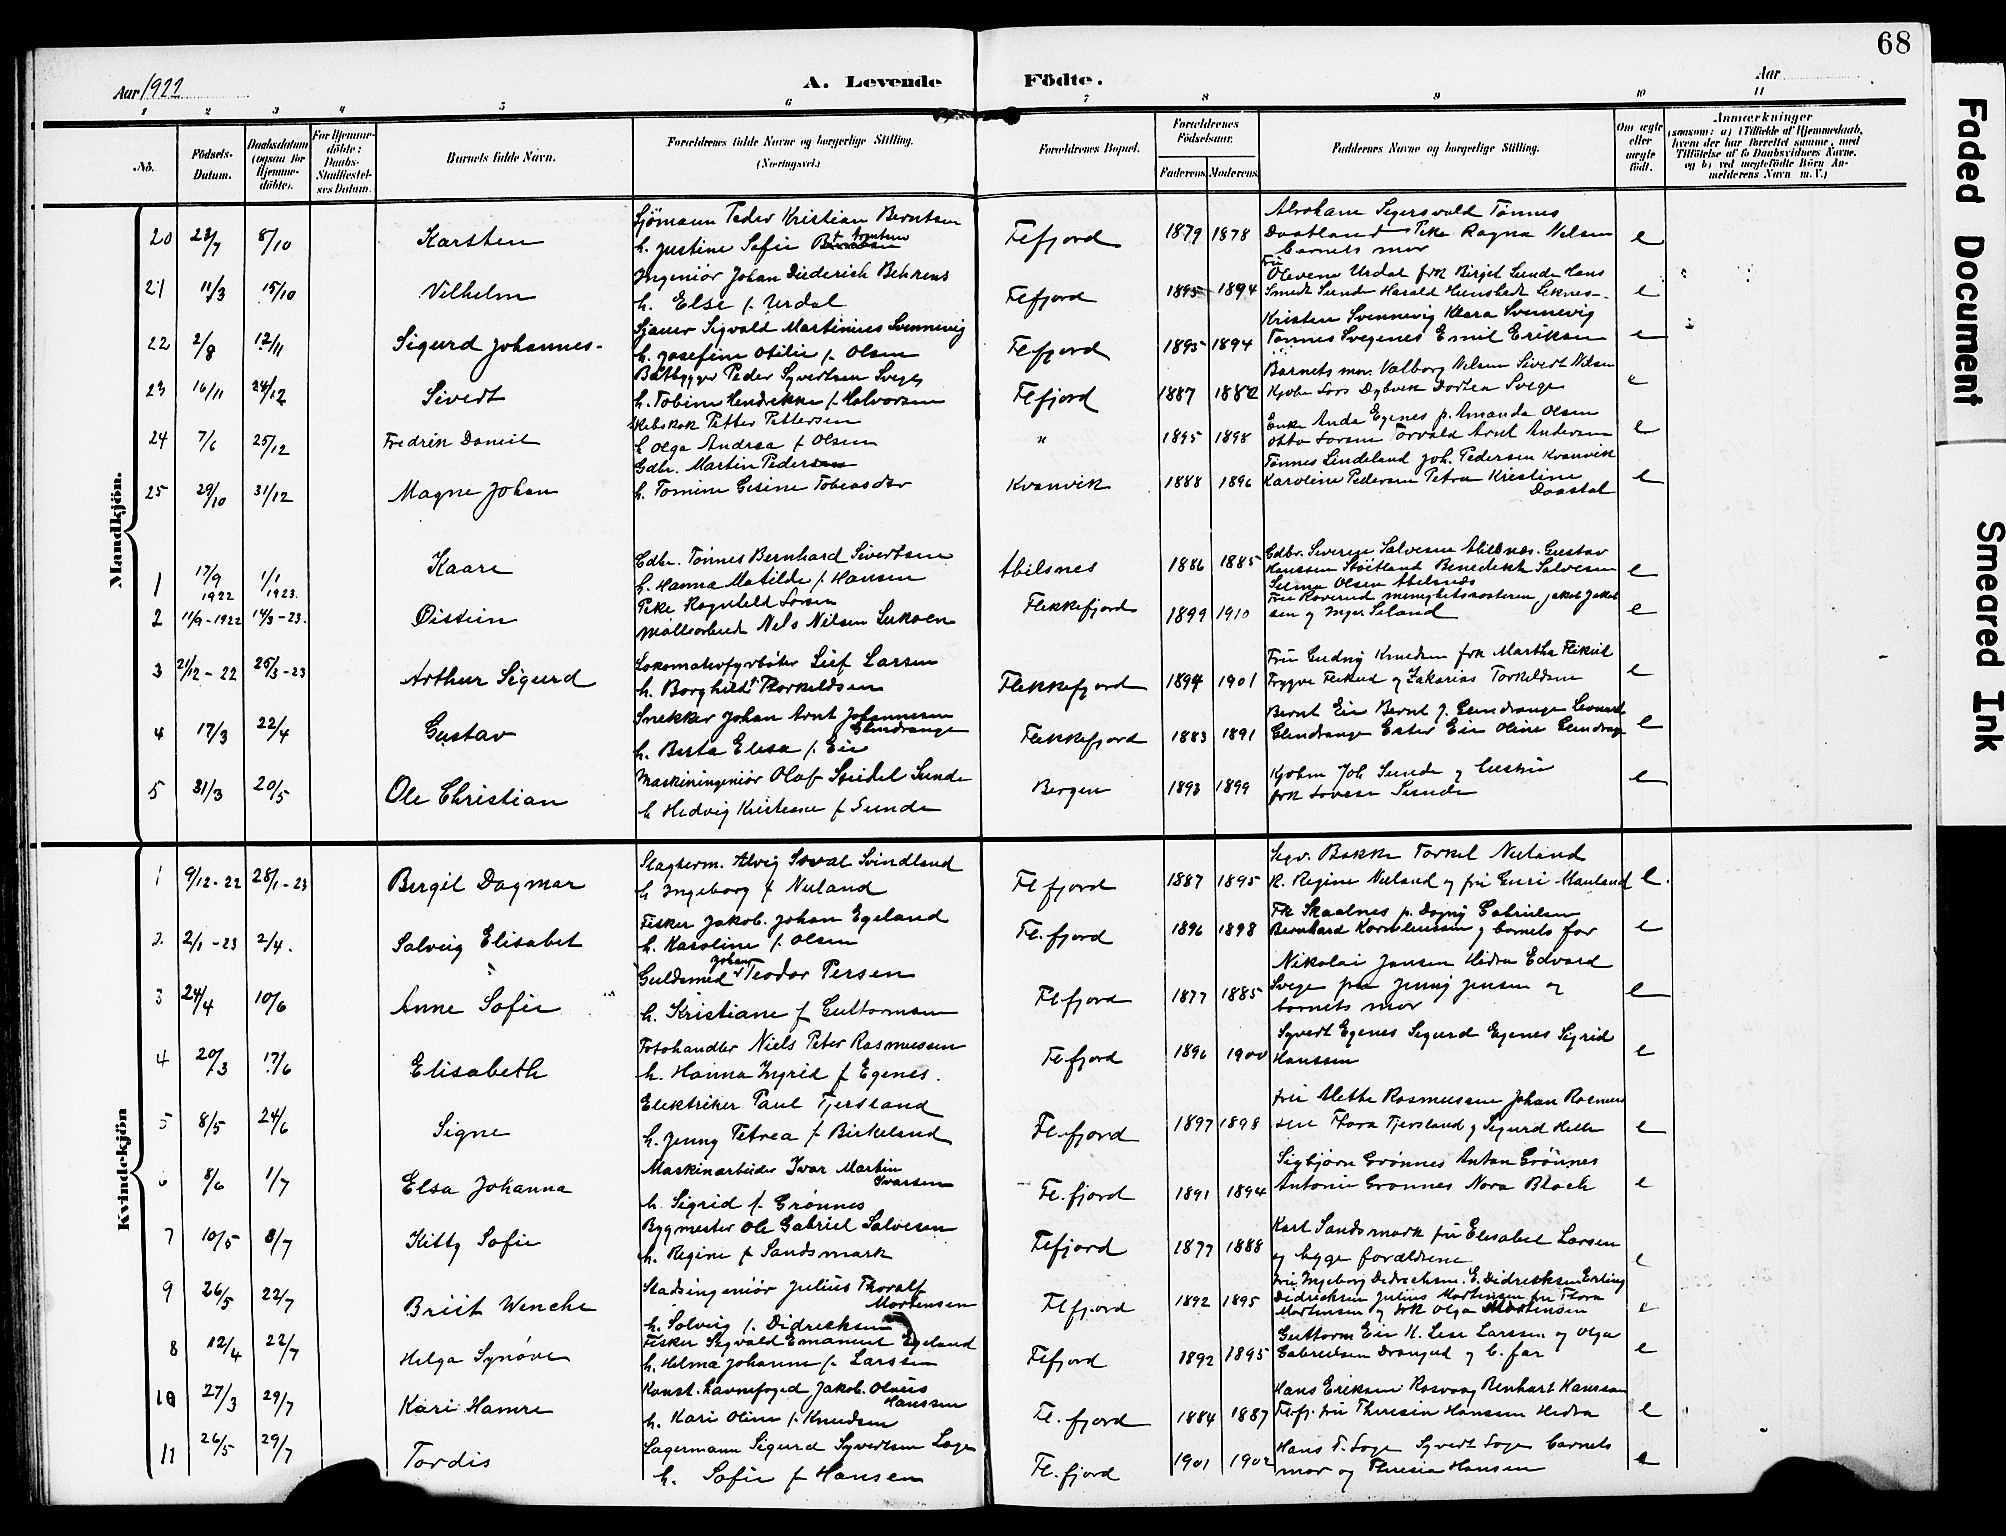 68
Aar 1922
A. Levende Födte.
Aar
1 2 3 4 5 6 7 8 9 10 11
No.
Födsels-Datum.
Daabsdatum (ogsaa for Hjemme-döbte).
For Hjemme-döbte: Daabs-Stadfæstel-ses Datum.
Barnets fulde Navn.
Forældrenes fulde Navne og borgerlige Stilling. (Næringsvei.)
Forældrenes Bopæl.
Forældrenes Födselsaar.
Faderens. Moderens.
Faddernes Navne og borgerlige Stilling.
Om ægte eller uægte födt.
Anmærkninger
(saasom: a) i Tilfælde af Hjemmedaab, hvem der har forrettet samme, med Tilföielse af to Daabsvidners Navne, og b) ved uægtefödte Börn An-melderens Navn m. V.)
Mandkjön.
20 23/7 8/10 Karsten Sjömann Peder Kristian Berntsen
h. Justine Sofie Flefjord 1879 1878 Abraham Sigersvold Tønnes
Daatland Pike Ragna Nilsen
barnets mor e
21 11/3 15/10 Vilhelm Ingeniör Johan Diederich Behrens
h. Else f. Urdal Flefjord 1895 1894 Fru Olevene Urdal frk Birgit Sunde Hans
Smedt Sunde Harald e
22 2/8 12/11 Sigurd Johannes Sjauer Sigvald Martinius Svennevig
h. Josefine Otilie f. Olsen Flefjord 1895 1894 Kristen Svennevig Klara Svennevig
Tönnes Svegenes Emil Eriksen e
23 16/11 24/12 Sivert Båtbygger Peder Syvertsen Svege
h. Tobine Hendrikke f. Halvorsen Flefjord 1887 1882 Barnets mor. Valborg Nilsen Sivert Nilsen
Kjøbm Lars Dybvik Dortea Svege e
24 7/6 25/12 Fredrik Daniel Skibskok Petter Pettersen
h Olga Andrea f Olsen " 1895 1898 Enke Anda Egenes p. Amanda Olsen
Otto Larsen Torvald Arnt Andersen e
25 29/10 31/12 Magne Johan Gdbr. Martin Pedersen
h. Tomine Gesine Tobiasdtr Kvanvik 1888 1896 Tönnes Lindeland Joh. Pedersen Kvanvik
Karoline Pedersen Petra Kristine
Daastøl e
1 17/9 1922 1/1 1923. Kaare Gdbr. Tönnes Bernhard Sivertsen
h. Hanna Matilde f. Hansen Abilsnes 1886 1885 Gdbr. Severin Salvesen Abilsnes. Gustav
Hanssen Stöitland Benedikte Salvesen
Selma Olsen Abelsnes e
2 11/9-1922 14/3-23. Øistein Pike Ragnhild Larsen
Möllearbeid Nels Nilsen Flekkefjord 1899 1910 Fru Roverud menighetssösteren Jakob Jakob
sen og Inger Seland e
3 21/12-22 25/3-23 Arthur Sigurd Lokomotivfyrböter Lief Larsen
h. Borghild f Thorkildsen Flekkefjord 1894 1901 Fru Gudny Knudsen frk Martha Flikeid
Trygve Flikeid og Zakarias Torkildsen e
4 17/3 22/4 Gustav Snekker Johan Arnt Johannesen
Glendrange
h. Berta Elisa f. Eie Flekkefjord 1883 1891 Bernt Eie Bernt J. Glendrange Leonard
Glendrange Ester Eie Oline Glendrange e
5 31/3 20/5 Ole Christian Maskiningeniör Olaf Seidel Sunde
h Hedvig Kristiane f Sunde Bergen 1893 1899 Kjøbm Joh Sunde og hustru
frk Lovise Sunde e
Kvindekjön
1 9/12-22 28/1-23 Birgit Dagmar Slagterm. Alvig Sival Svindland
h Ingeborg f Nuland Fl fjord 1887 1895 Sigv. Bakke Torkel Nuland
K. Regine Nuland og fru Guri Mauland e.
2. 2/1-23 2/4. Solveig Elisabet Fisker Jakob. Johan Egeland
h. Karoline f. Olsen Fl. fjord 1896 1898 Frk Skaalnes p. Dagny Gabrielsen
Bernhard Korneliussen og barnets far e
3 24/4 10/6 Anne Sofie Guldsmed Johan Teodor Persen
h. Kristiane f Guttormsen Flefjord 1877 1885 Nikolai Jansen Hidra Edvard
Svege frk Jenny Jensen og
barnets mor e
4 20/3 17/6 Elisabeth Fotohandler Niels Peter Rasmussen
h. Hanna Ingrid f Egenes. Flefjord 1896 1900 Syvert Egenes Sigurd Egenes Sigrid
Hanssen e
5 8/5 24/6 Signe Elektriker Paul Tjersland
h. Jenny Petrea f Birkeland Fl.fjord 1897 1898 fru Alette Rasmussen Johan Rasmus
sen Thora Tjersland og Sigurd Helle e
6 8/6 1/7 Elsa Johanna Maskinarbeider Ivar Martin
Ivarsen
h. Sigrid f. Grönnes Fl. fjord 1891 1894 Sigbjörn Grönnes Anton Grönnes
Antonie Grønnes Nora Block e
7 10/5 8/7 Kitty Sofie Bygmester Ole Gabriel Salvesen
h. Regine f Sandsmark Flefjord 1877 1888 Karl Sandsmark fru Elisabet Larsen
og begge forældrene e
9 26/5 22/7 Briit Wenche Stadsingeniör Julius Thoralf
Mortensen
h. Solveig f. Didricksen Flfjord 1892 1895 fru Ingeborg Didrichsen. E. Didricksen Erling
Didrichsen Julius Mortensen fru Thora
Mortensen og frk Olga Mortensen e
8 12/4 22/7 Helga Synöve Fisker Sigvald Emanuel Egeland
h. Helma Johanne f. Larssen Flefjord 1892 1895 Guttorm Eie H. Lise Larssen og Olga
Gabrielsen Drangeid og b. far e
10 27/3 29/7 Kari Hamre Konst. havnefoged Jakob. Olaus
Hanssen
h. Kari Oline f. Knudsen Fl. fjord 1884 1887 Hans Eriksen Rasvaag Renhart Hanssen
Flefj. fru Theresia Hanssen Hidra e
11 26/5 29/7 Tordis Lagermann Sigurd Syvertsen Loge
h. Sofie f Hansen Fl. fjord 1901 1902 Hans T. Loge Syvert Loge barnets
mor og Theresia Hansen e
Faded Document
Smeared Ink